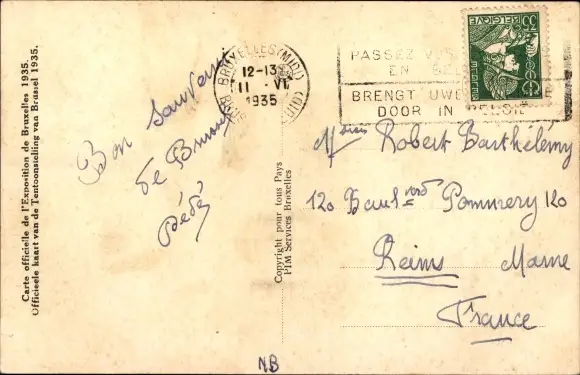 Carte officielle de l'Exposition de Bruxelles 1935.
Officieele kaart van de Tentoonstelling van Brussel 1935.
Bon souvenir
de Bruxelles
Dédé
Copyright pour tous Pays
PIM Services Bruxelles
BRUXELLES (MIDI)
12-13
11 VI
1935
BRUSSEL (ZUID)
PASSEZ VOS
EN BEL
BRENGT UWE
DOOR IN BELGIË
BELGIQUE
35c
Robert Barthélémy
120 Boul Pommery 120
Reims Marne
France
NB